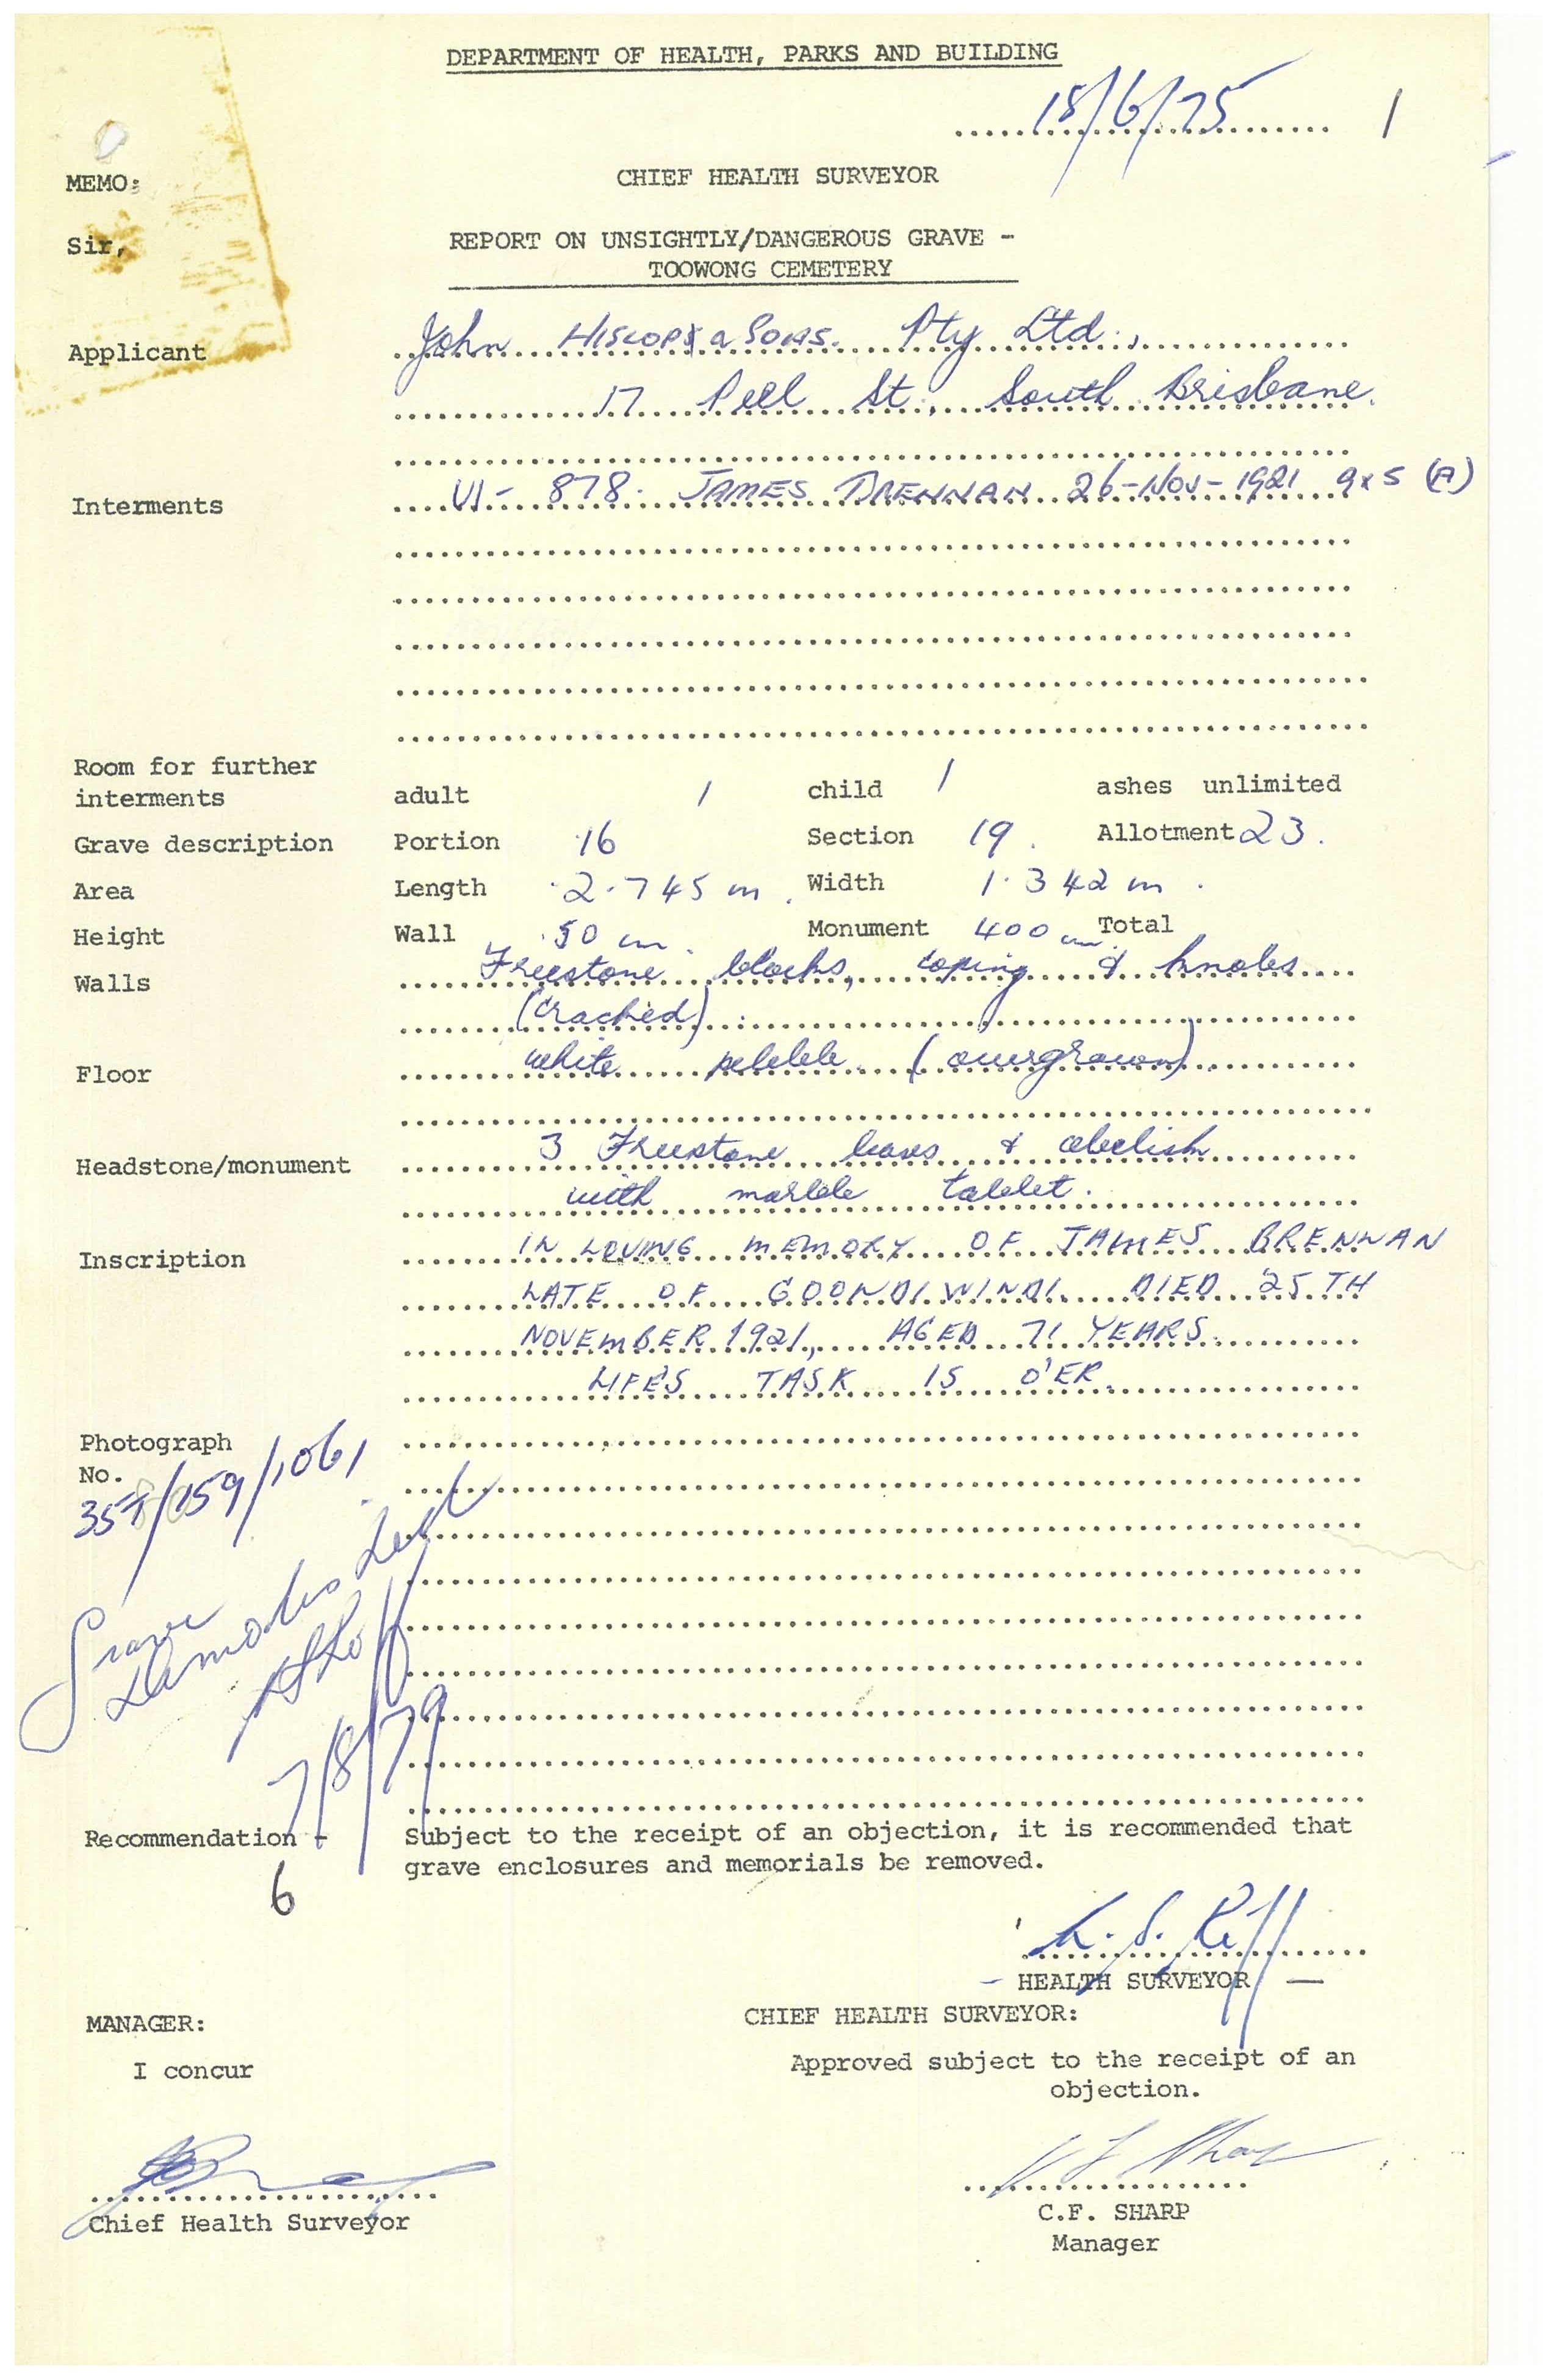 DEPARTMENT OF HEALTH, PARKS AND BUILDING
18/6/75
1
MEMO:
CHIEF HEALTH SURVEYOR
Sir,
REPORT ON UNSIGHTLY/DANGEROUS GRAVE -
TOOWONG CEMETERY
Applicant John Hislop & Sons. Pty Ltd.,
17 Peel St., South Brisbane.
Interments VI- 878. JAMES BRENNAN 26-NOV-1921 9x5 (A)
Room for further
interments adult 1 child 1 ashes unlimited
Grave description Portion 16 Section 19. Allotment 23.
Area Length 2.745 m. Width 1.342 m.
Height Wall 50 cm. Monument 400 cm. Total
Walls Freestone blocks, coping & knobs
(cracked).
Floor white pebble (overgrown).
Headstone/monument 3 Freestone bases & obelish
with marble tablet.
Inscription IN LOVING MEMORY OF JAMES BRENNAN
LATE OF GOONDIWINDI DIED 25TH
NOVEMBER 1921, AGED 71 YEARS.
LIFE'S TASK IS O'ER.
Photograph
No.
/159/1061
Grave
Demolished
7/8/79
Recommendation - Subject to the receipt of an objection, it is recommended that
grave enclosures and memorials be removed.
6
HEALTH SURVEYOR
MANAGER:
CHIEF HEALTH SURVEYOR:
I concur
Approved subject to the receipt of an
objection.
Chief Health Surveyor
C.F. SHARP
Manager